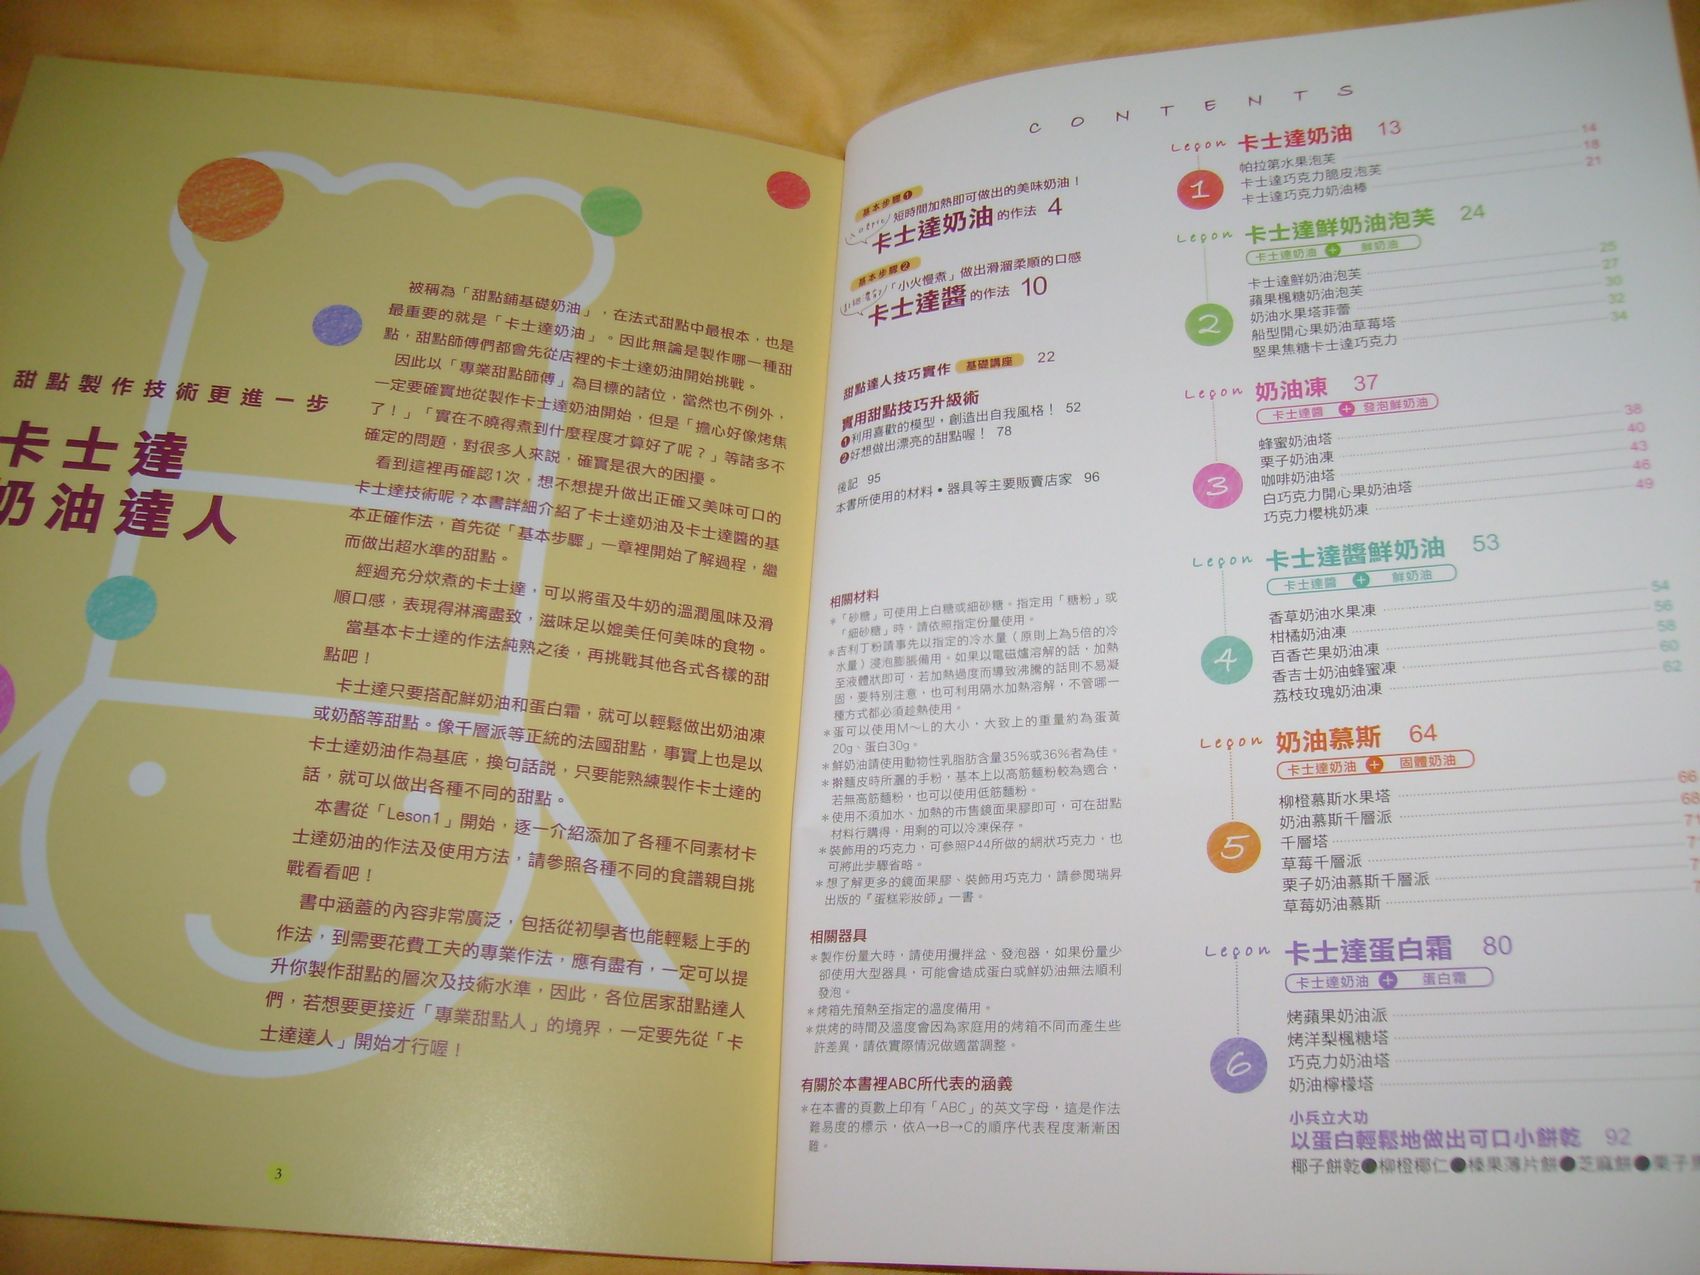 甜點製作技術更進一步
卡士達
奶油達人
被稱為「甜點鋪基礎奶油」，在法式甜點中最根本，也是
最重要的就是「卡士達奶油」。因此無論是製作哪一種甜
點，甜點師傅們都會先從店裡的卡士達奶油開始挑戰。
因此以「專業甜點師傅」為目標的諸位，當然也不例外，
一定要確實地從製作卡士達奶油開始，但是「擔心好像烤焦
了！」「實在不曉得煮到什麼程度才算好了呢？」等諸多不
確定的問題，對很多人來說，確實是很大的困擾。
看到這裡再確認1次，想不想提升做出正確又美味可口的
卡士達技術呢？本書詳細介紹了卡士達奶油及卡士達醬的基
本正確作法，首先從「基本步驟」一章裡開始了解過程，繼
而做出超水準的甜點。
經過充分炊煮的卡士達，可以將蛋及牛奶的溫潤風味及滑
順口感，表現得淋漓盡致，滋味足以媲美任何美味的食物。
當基本卡士達的作法純熟之後，再挑戰其他各式各樣的甜
點吧！
卡士達只要搭配鮮奶油和蛋白霜，就可以輕鬆做出奶油凍
或奶酪等甜點。像千層派等正統的法國甜點，事實上也是以
卡士達奶油作為基底，換句話說，只要能熟練製作卡士達的
話，就可以做出各種不同的甜點。
本書從「Leson1」開始，逐一介紹添加了各種不同素材卡
士達奶油的作法及使用方法，請參照各種不同的食譜親自挑
戰看看吧！
書中涵蓋的內容非常廣泛，包括從初學者也能輕鬆上手的
作法，到需要花費工夫的專業作法，應有盡有，一定可以提
升你製作甜點的層次及技術水準，因此，各位居家甜點達人
們，若想要更接近「專業甜點人」的境界，一定要先從「卡
士達達人」開始才行喔！
3
CONTENTS
基本步驟❶
短時間加熱即可做出的美味奶油！
卡士達奶油的作法 4
基本步驟❷
「小火慢煮」做出滑溜柔順的口感
卡士達醬的作法 10
甜點達人技巧實作 基礎講座 22
實用甜點技巧升級術
❶利用喜歡的模型，創造出自我風格！ 52
❷好想做出漂亮的甜點喔！ 78
後記 95
本書所使用的材料•器具等主要販賣店家 96
相關材料
＊「砂糖」可使用上白糖或細砂糖。指定用「糖粉」或
「細砂糖」時，請依照指定份量使用。
＊吉利丁粉請事先以指定的冷水量（原則上為5倍的冷
水量）浸泡膨脹備用。如果以電磁爐溶解的話，加熱
至液體狀即可，若加熱過度而導致沸騰的話則不易凝
固，要特別注意，也可利用隔水加熱溶解，不管哪一
種方式都必須趁熱使用。
＊蛋可以使用M～L的大小，大致上的重量約為蛋黃
20g、蛋白30g。
＊鮮奶油請使用動物性乳脂肪含量35%或36%者為佳。
＊擀麵皮時所灑的手粉，基本上以高筋麵粉較為適合，
若無高筋麵粉，也可以使用低筋麵粉。
＊使用不須加水、加熱的市售鏡面果膠即可，可在甜點
材料行購得，用剩的可以冷凍保存。
＊裝飾用的巧克力，可參照P44所做的網狀巧克力，也
可將此步驟省略。
＊想了解更多的鏡面果膠、裝飾用巧克力，請參閱瑞昇
出版的『蛋糕彩妝師』一書。
相關器具
＊製作份量大時，請使用攪拌盆、發泡器，如果份量少
卻使用大型器具，可能會造成蛋白或鮮奶油無法順利
發泡。
＊烤箱先預熱至指定的溫度備用。
＊烘烤的時間及溫度會因為家庭用的烤箱不同而產生些
許差異，請依實際情況做適當調整。
有關於本書裡ABC所代表的涵義
＊在本書的頁數上印有「ABC」的英文字母，這是作法
難易度的標示，依A→B→C的順序代表程度漸漸困
難。
Leson 1 卡士達奶油 13
帕拉第水果泡芙 14
卡士達巧克力脆皮泡芙 18
卡士達巧克力奶油棒 21
Leson 2 卡士達鮮奶油泡芙 24
卡士達奶油 + 鮮奶油
卡士達鮮奶油泡芙 25
蘋果楓糖奶油泡芙 27
奶油水果塔菲蕾 30
船型開心果奶油草莓塔 32
堅果焦糖卡士達巧克力 34
Leson 3 奶油凍 37
卡士達醬 + 發泡鮮奶油
蜂蜜奶油塔 38
栗子奶油凍 40
咖啡奶油塔 43
白巧克力開心果奶油塔 46
巧克力櫻桃奶凍 49
Leson 4 卡士達醬鮮奶油 53
卡士達醬 + 鮮奶油
香草奶油水果凍 54
柑橘奶油凍 56
百香芒果奶油凍 58
香吉士奶油蜂蜜凍 60
荔枝玫瑰奶油凍 62
Leson 5 奶油慕斯 64
卡士達奶油 + 固體奶油
柳橙慕斯水果塔 66
奶油慕斯千層派 68
千層塔 71
草莓千層派
栗子奶油慕斯千層派
草莓奶油慕斯
Leson 6 卡士達蛋白霜 80
卡士達奶油 + 蛋白霜
烤蘋果奶油派
烤洋梨楓糖塔
巧克力奶油塔
奶油檸檬塔
小兵立大功
以蛋白輕鬆地做出可口小餅乾 92
椰子餅乾●柳橙椰仁●榛果薄片餅●芝麻餅●栗子